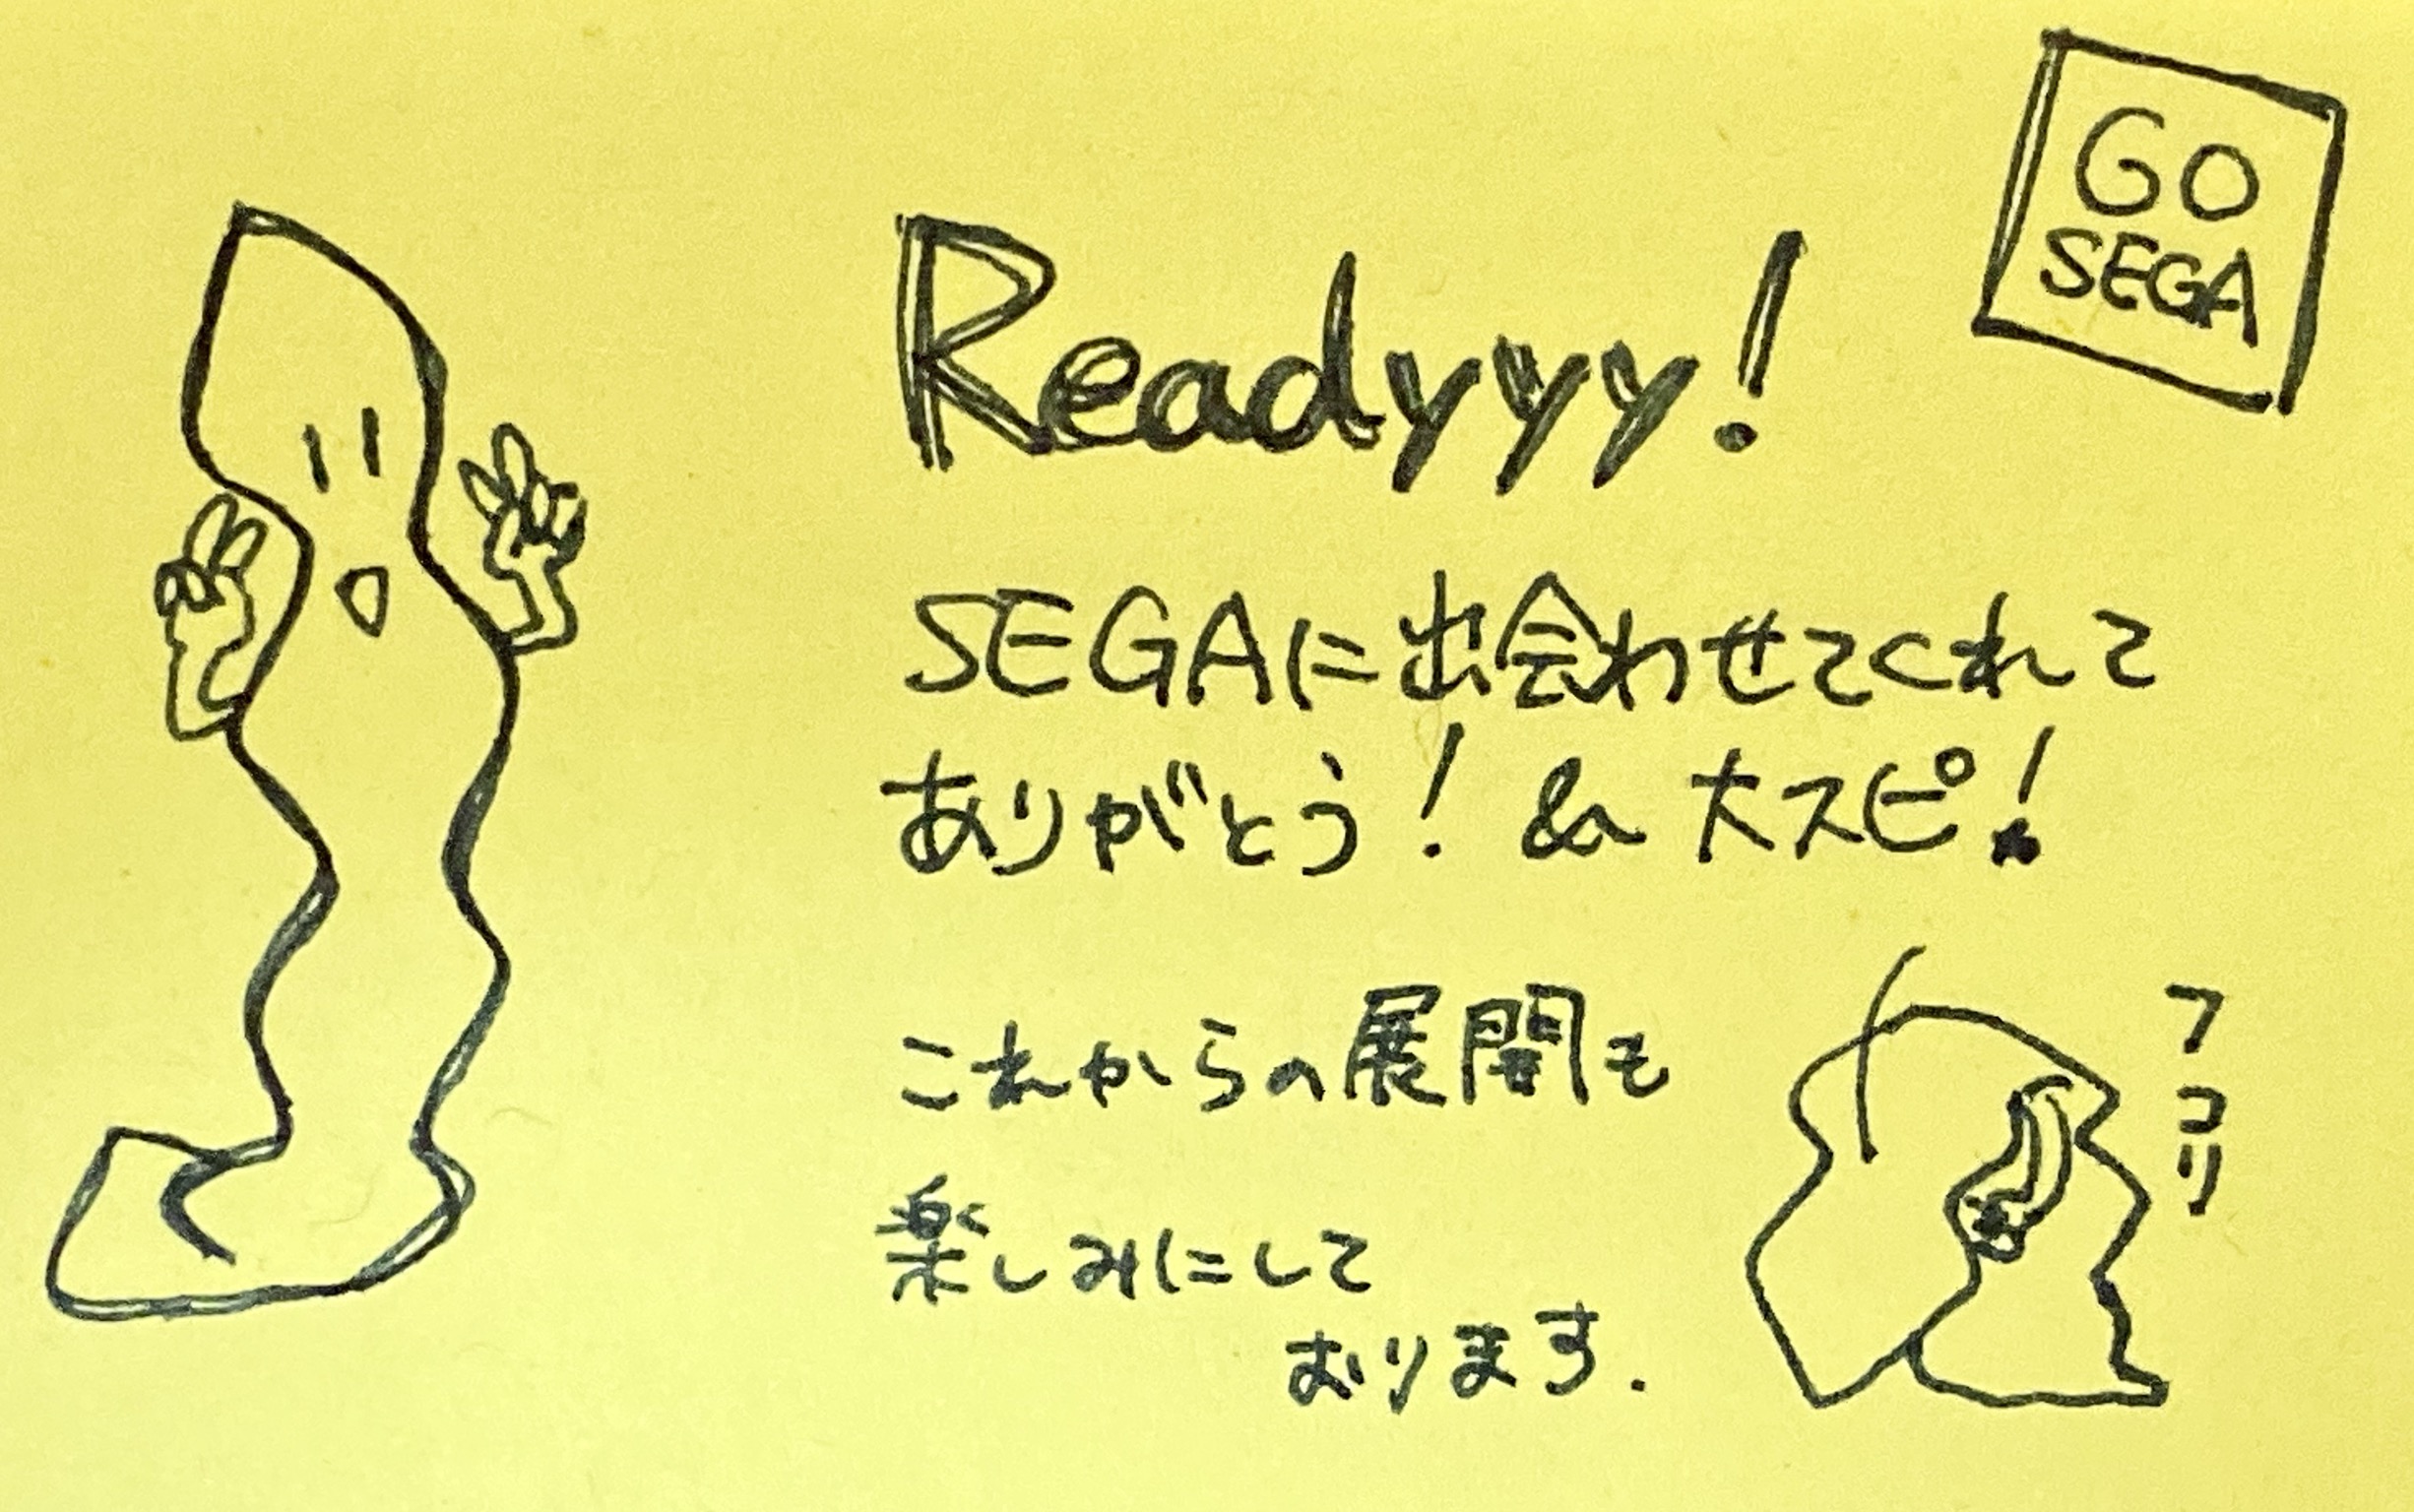 GO
SEGA
Readyyy!
SEGAに出会わせてくれて
ありがとう! & 大スピ!
これからの展開も
楽しみにして
おります.
フコリ